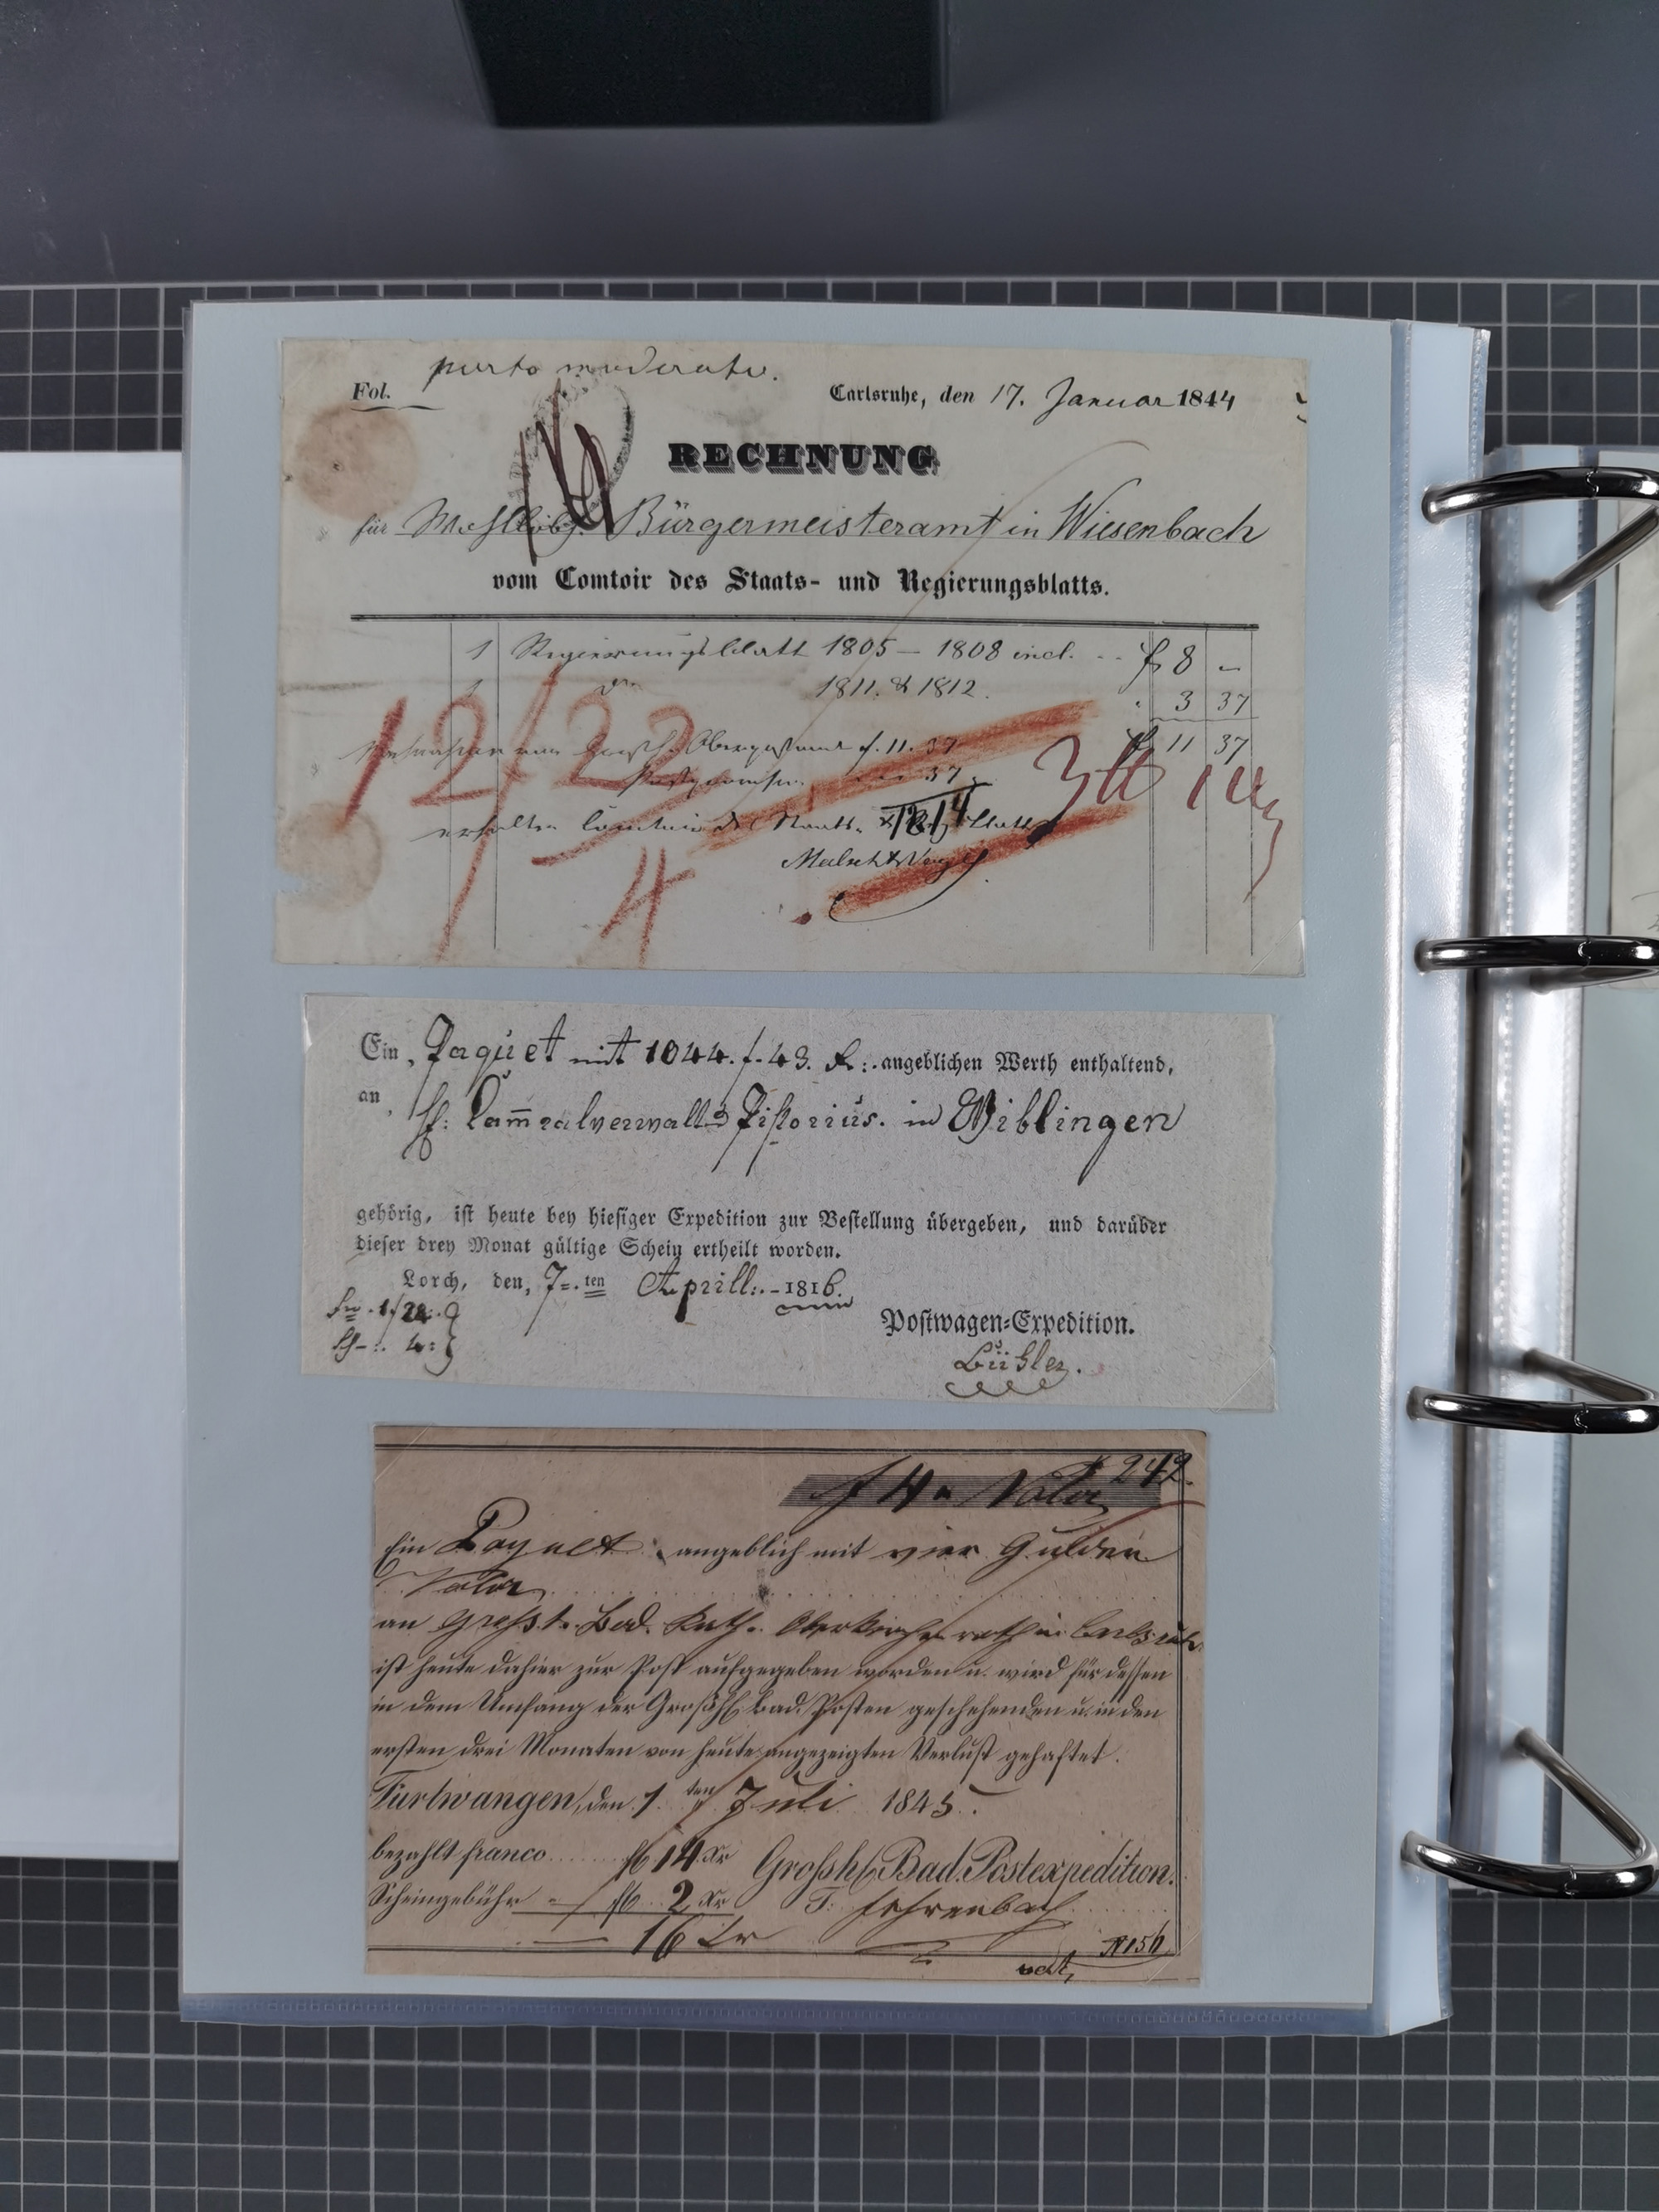 porto moderato.
Fol.
Carlsruhe, den 17. Januar 1844
RECHNUNG
für Bürgermeisteramt in Wiesenbach
vom Comtoir des Staats- und Regierungsblatts.
1 Regierungsblatt 1805 — 1808 incl. f 8 —
1 do 1811. & 1812. 3 37
f 11 37
Obige f. 11. 37
37
12/22
12/14
4
erhalten Comtoir des Staats- & Blatts
Ein Paquet mit 1044. f. 43. Kr. angeblichen Werth enthaltend,
an
H: Cam̄eralverwaltr Pistorius. in Wiblingen
gehörig, ist heute bey hiesiger Expedition zur Bestellung übergeben, und darüber
dieser drey Monat gültige Schein ertheilt worden.
Lorch, den, 7ten Aprill. 1816.
4
Postwagen-Expedition.
Bühler.
242.
f 4 " Valor
Ein Paquet angeblich mit vier Gulden
Valor
an Grossh. Bad. Kath. Oberkirchenrath in Carlsruhe
ist heute dahier zur Post aufgegeben worden u. wird für dessen
in dem Umfang der Großh. bad. Posten geschehenden u. in den
ersten drei Monaten von heute angezeigten Verlust gehaftet.
Furtwangen, den 1ten Juli 1845.
bezahlt franco fl 14 Xr Großh. Bad. Postexpedition.
Scheingebühr fl 2 Xr F. Fehrenbach
16 Xr